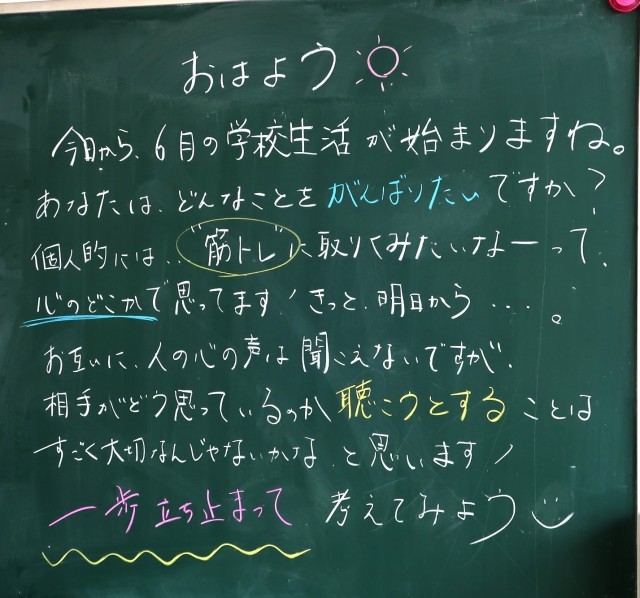 おはよう
今日から、6月の学校生活が始まりますね。
あなたは、どんなことをがんばりたいですか?
個人的には、"筋トレ"に取りくみたいなーって、
心のどこかで思ってます!きっと、明日から....。
お互いに、人の心の声は聞こえないですが、
相手がどう思っているのか聴こうとすることは
すごく大切なんじゃないかな、と思います!
一歩立ち止まって、考えてみよう